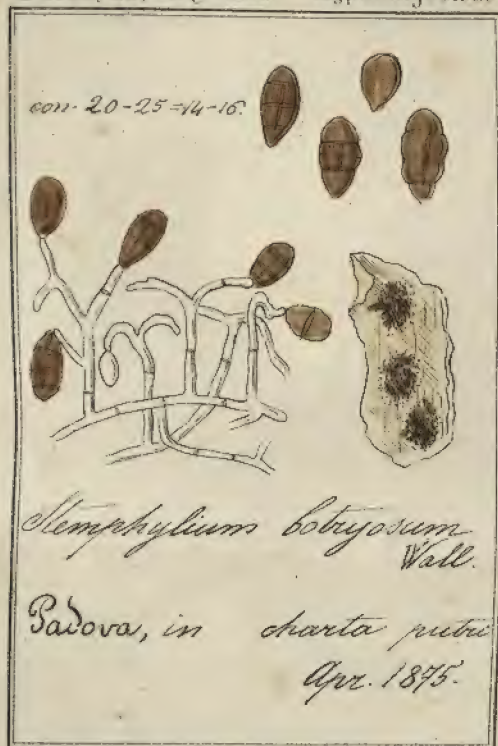 con. 20-25=14-16.
Stemphylium botryosum
Wall.
Padova, in charta putri
Apr. 1875.